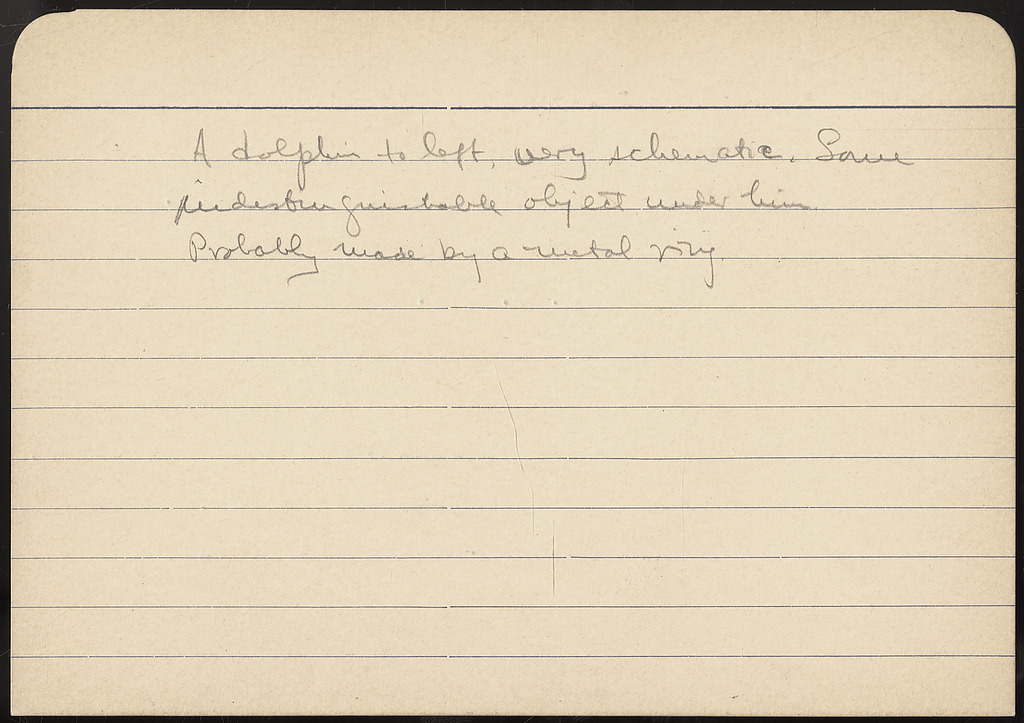 A dolphin to left, very schematic. Some
indestinguistable object under him
Probably made by a metal ring.